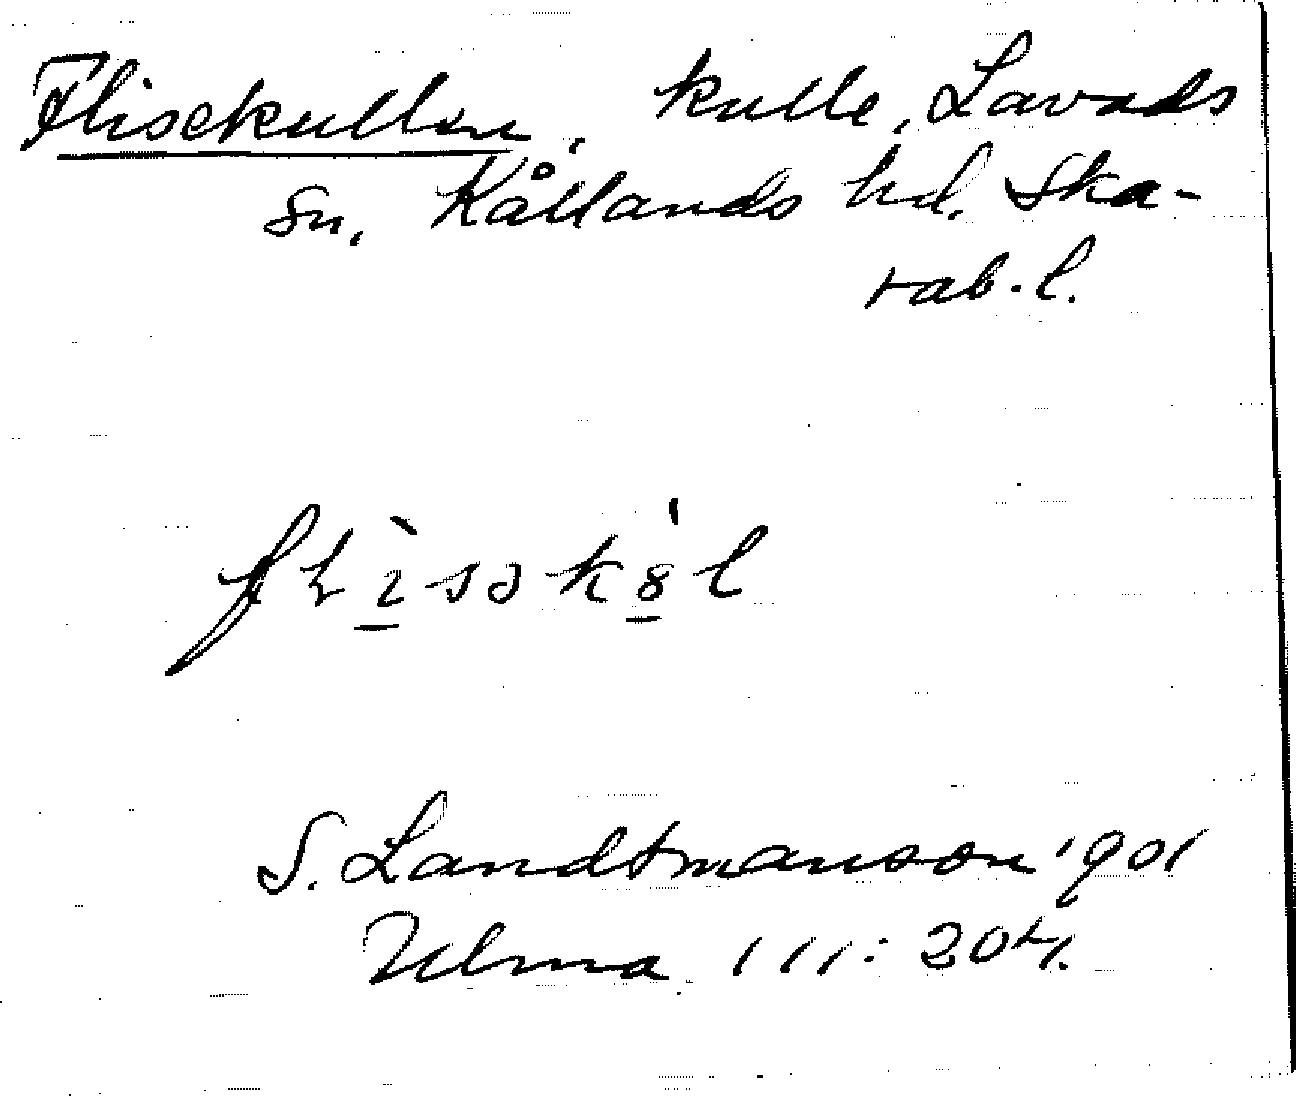 Flisekullen, kulle, Lavads
sn, Kållands hd. Ska-
rab.l.
S. Landtmanson 1901
Ulma 111:204.